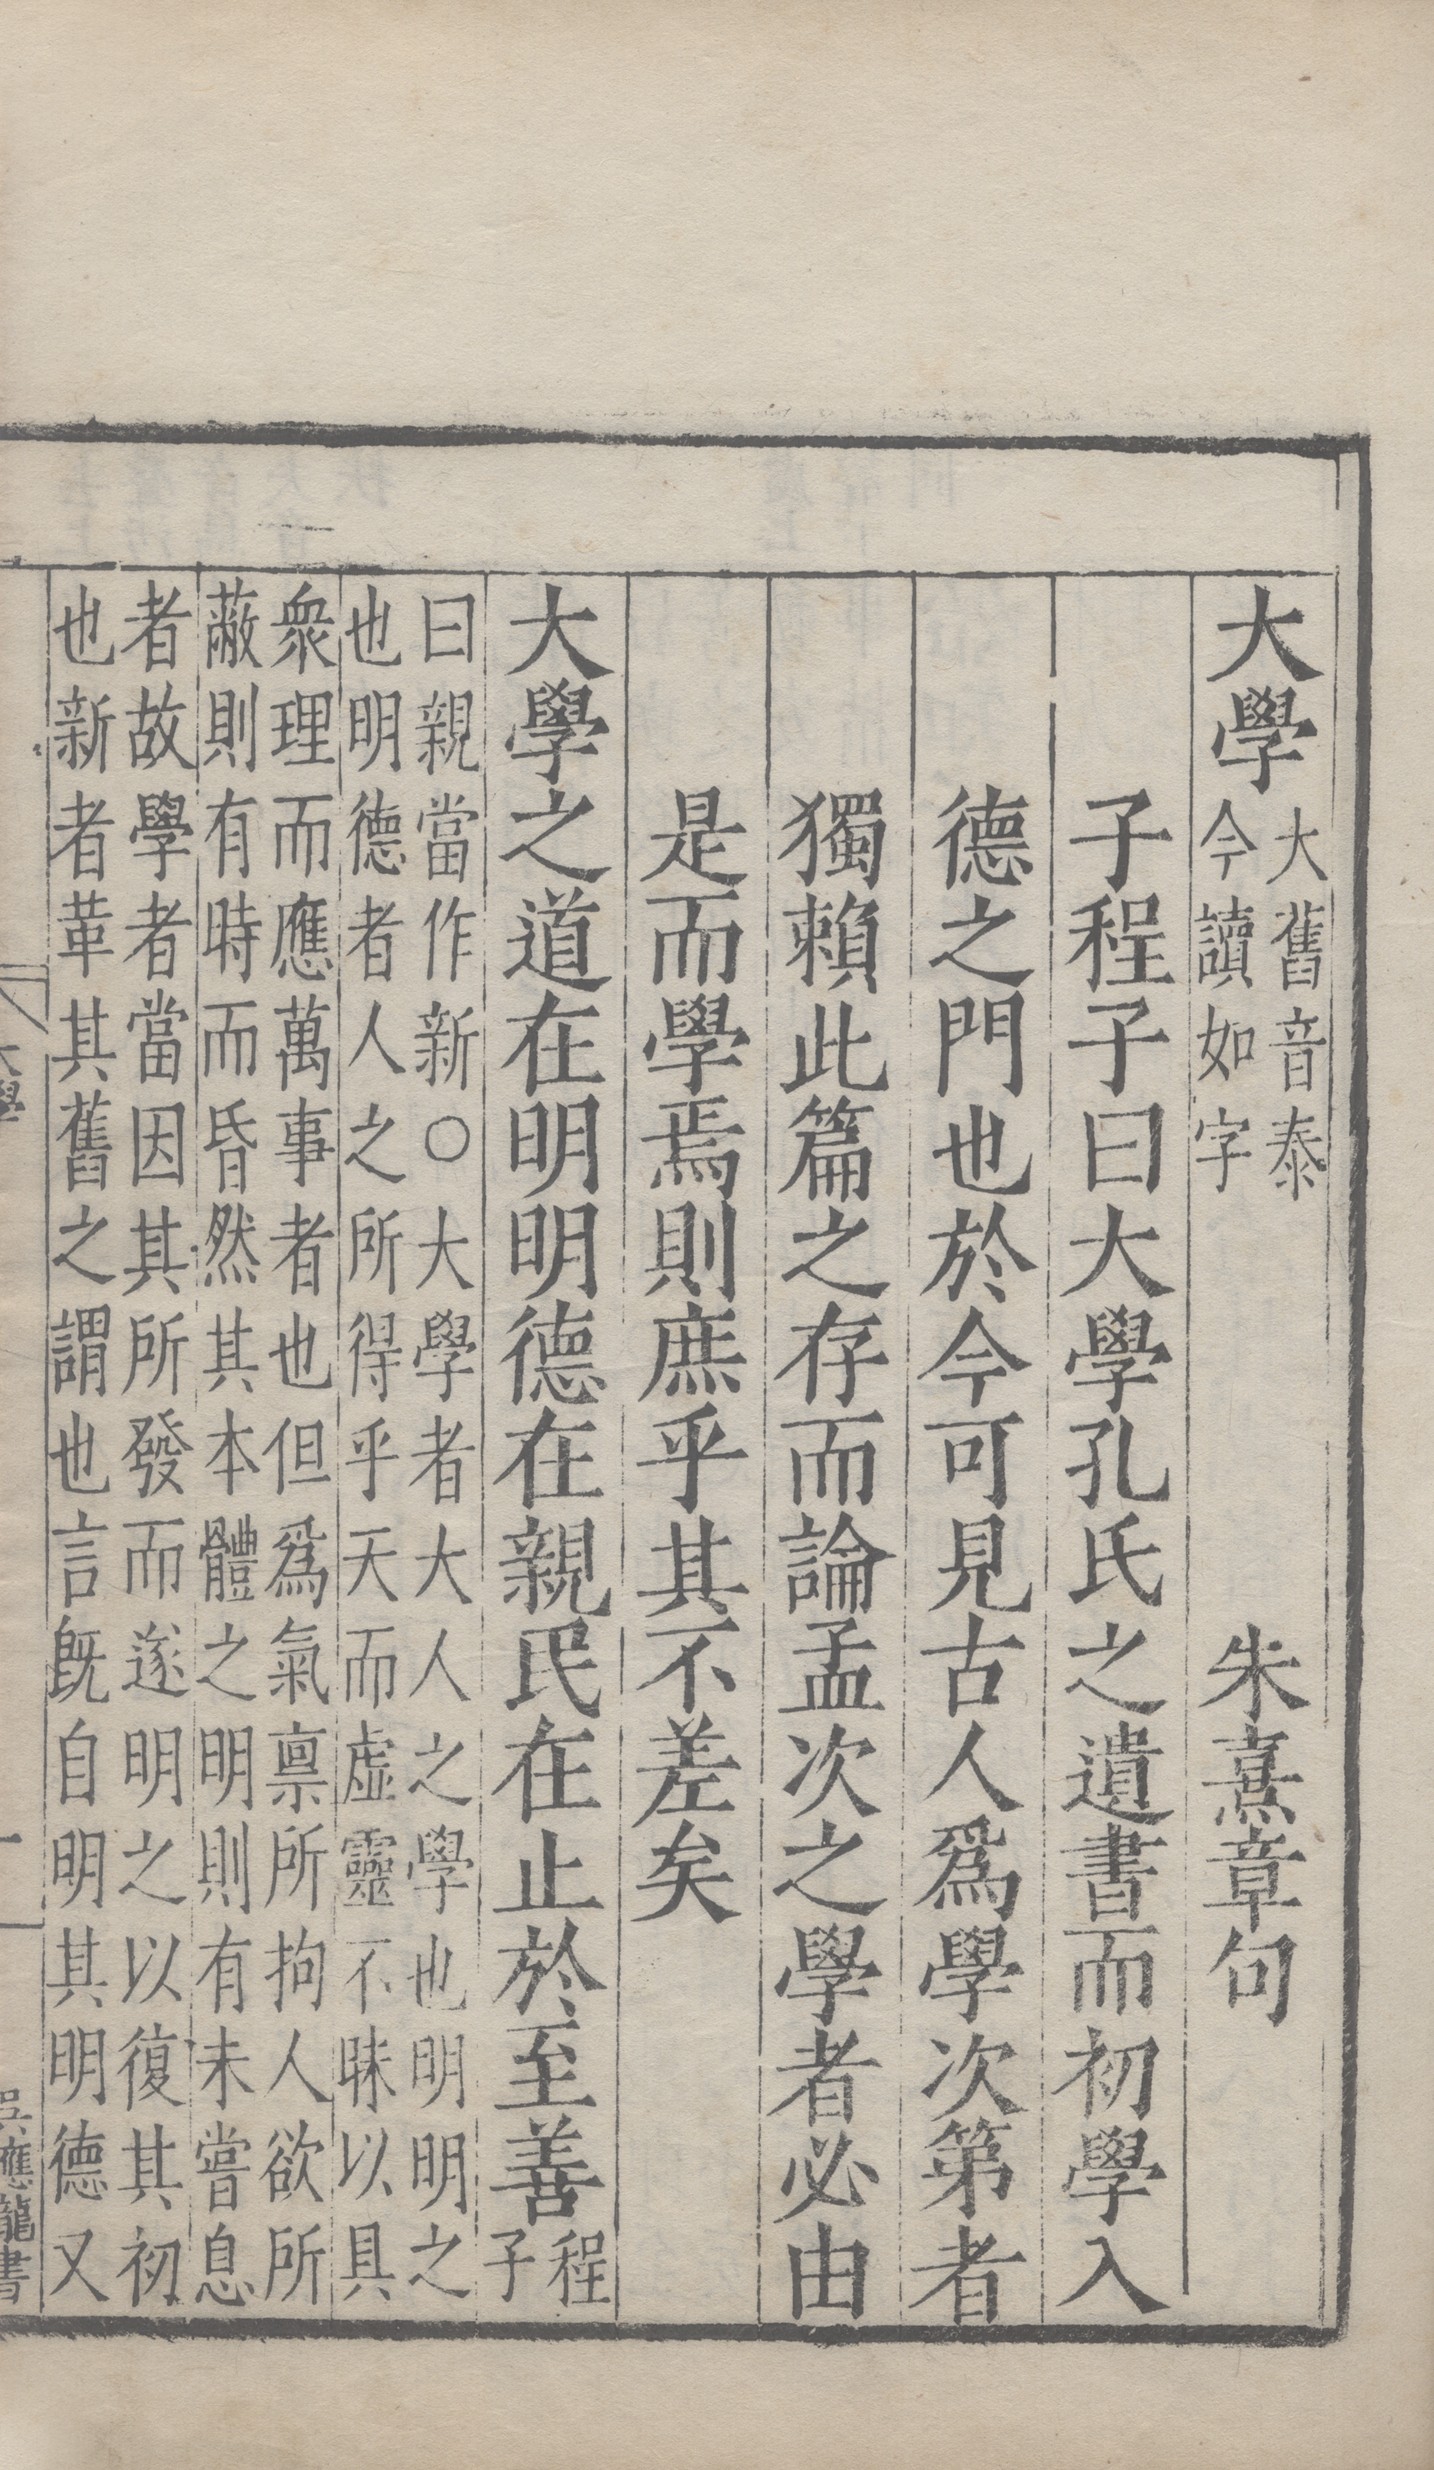 大學大舊音泰今讀如字 朱熹章句
子程子曰大學孔氏之遺書而初學入
德之門也於今可見古人爲學次第者
獨賴此篇之存而論孟次之學者必由
是而學焉則庶乎其不差矣
大學之道在明明德在親民在止於至善程子
曰親當作新○大學者大人之學也明明之
也明德者人之所得乎天而虛靈不昧以具
衆理而應萬事者也但爲氣禀所拘人欲所
蔽則有時而昏然其本體之明則有未嘗息
者故學者當因其所發而遂明之以復其初
也新者革其舊之謂也言旣自明其明德又
大學
一
吳應龍書